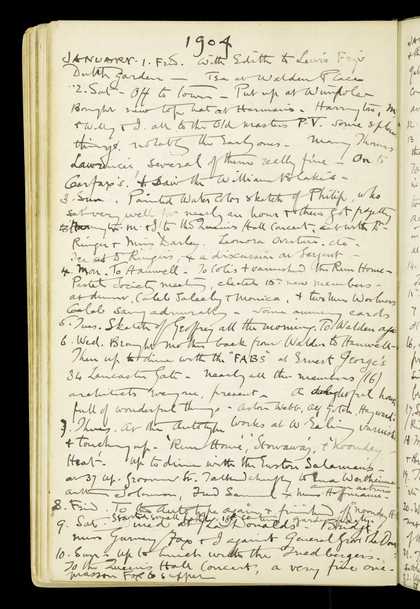 1904
JANUARY. 1. Frid. With Edith to Lewis
Dutch Garden — Tea at Walden Place
2. Sat. Off to town. Put up at Wimpole
Bought new top hat at Harman's. Harrington, M
& Willy & I all to the Old masters P.V. Some splen
things, notably the Early ones. Many Thomas
Lawrences several of them really fine — On to
Carfax's, & saw the William Blakes.
3. Sun. Painted Water Color sketch of Philip, who
sat very well for nearly an hour & then got
M. & I to the Queens Hall Concert, with Dr
Ringer & Miss Darley. Leonora Overture, etc —
Tea at S. Ringers, & a discussion on Sargent —
4. Mon. To Hanwell. To Cotes & varnished the Rum Home —
Pastel Society meeting, elected 15 new members —
at dinner, Caleb Saleeby & Monica, & two
Caleb sang admirably — Some cards
5. Tues. Sketch of Geoffrey all the morning. To Walden
6. Wed. Brought Mother back from Walden to Hanwell —
Then up to dine with the "FABS" at Ernest George's
34 Lancaster Gate — Nearly all the members (16)
architects everyone, present — A delightful house
full of wonderful things — Aston Webb, Gotch, Hayward.
7. Thurs. At the Autotype Works at W Ealing
& touching up "Rum Home", "Stowaway", & "Noonday
Heat". Up to dinner with the Euston Salamans —
at 37 Up. Grosvenor St. Talked chiefly to
Solomon, Fred & Mrs
8. Frid. To the Autotype again & finished "Noonday H
9. Sat. Dined at the Donalds' Bridge,
Miss Gurney Fox & I against General
10. Sun. Up to lunch with the Lindbergers.
To the Queens Hall Concert, a very fine one.
Fox to supper